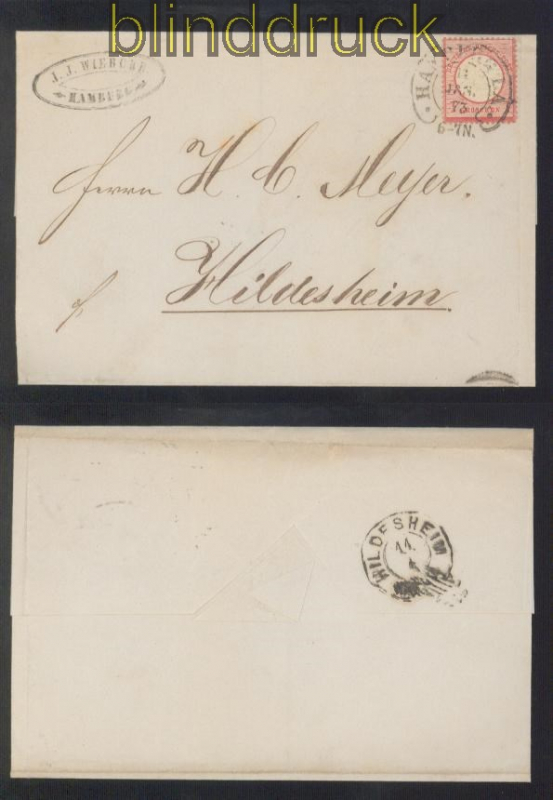 blinddruck
J. J. WIEBCKE
HAMBURG
JAN.
73
6-7N.
Herrn H. C. Meyer.
Hildesheim
HILDESHEIM
14.